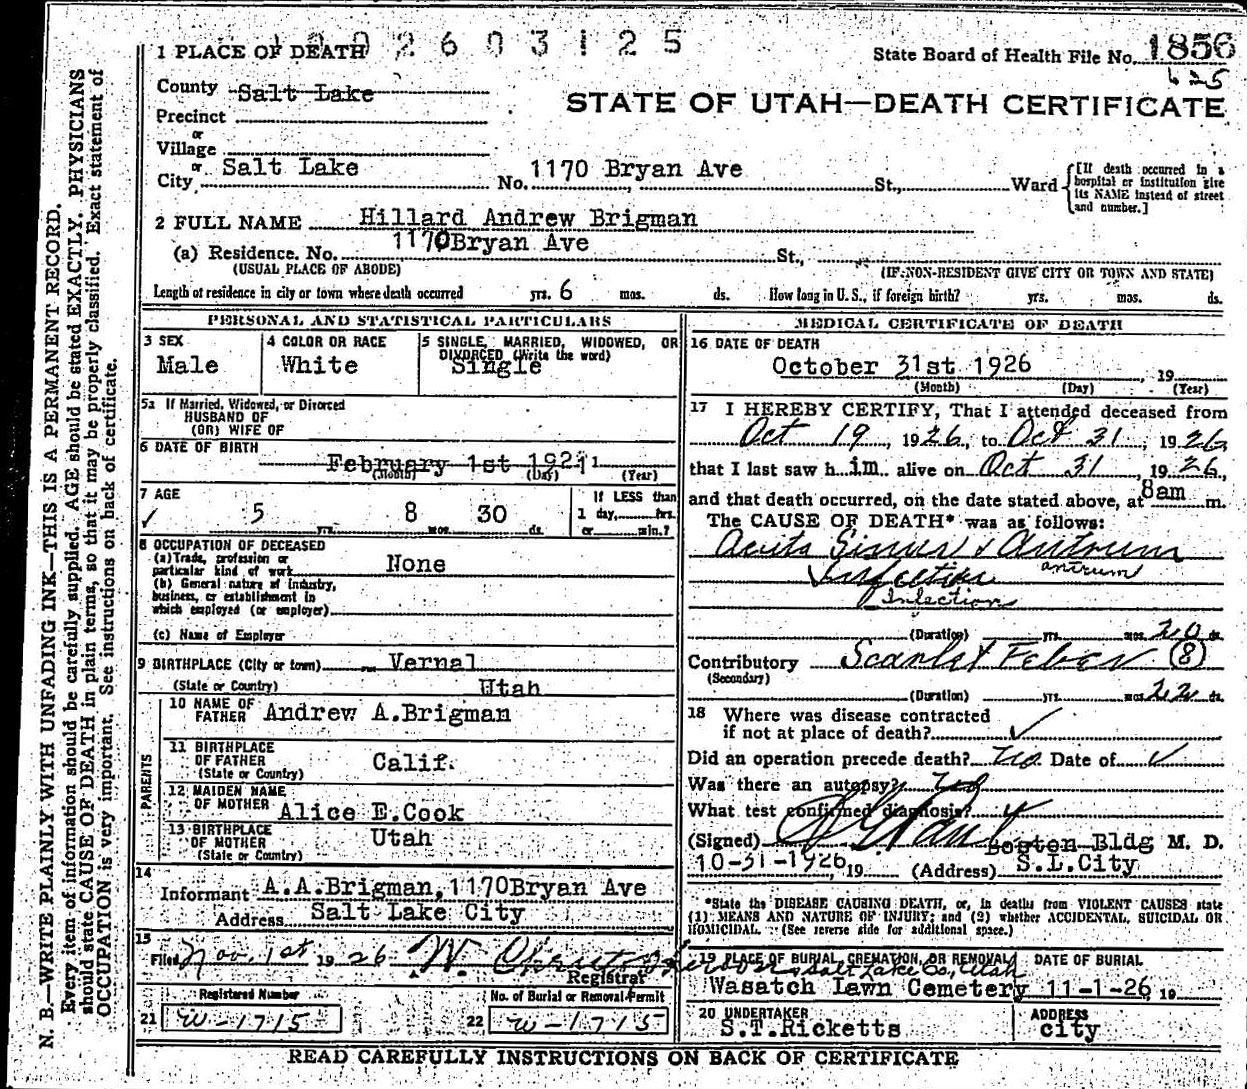 1 PLACE OF DEATH
2603125
State Board of Health File No. 1856
625
County Salt Lake
STATE OF UTAH—DEATH CERTIFICATE
Precinct
or
Village
or
City Salt Lake No. 1170 Bryan Ave St., Ward
[If death occurred in a
hospital or institution give
its NAME instead of street
and number.]
2 FULL NAME Hillard Andrew Brigman
(a) Residence. No. 1170 Bryan Ave St.,
(USUAL PLACE OF ABODE) (IF NON-RESIDENT GIVE CITY OR TOWN AND STATE)
Length of residence in city or town where death occurred yrs. 6 mos. ds. How long in U. S., if foreign birth? yrs. mos. ds.
PERSONAL AND STATISTICAL PARTICULARS
3 SEX
Male
4 COLOR OR RACE
White
5 SINGLE, MARRIED, WIDOWED, OR
DIVORCED (Write the word)
Single
5a If Married, Widowed, or Divorced
HUSBAND OF
(OR) WIFE OF
6 DATE OF BIRTH
February 1st 1921
(Month) (Day) (Year)
7 AGE
5 yrs. 8 mos. 30 ds.
If LESS than
1 day, hrs.
or min.?
8 OCCUPATION OF DECEASED
(a) Trade, profession or
particular kind of work None
(b) General nature of Industry,
business, or establishment in
which employed (or employer)
(c) Name of Employer
9 BIRTHPLACE (City or town) Vernal
(State or Country) Utah
PARENTS
10 NAME OF
FATHER Andrew A.Brigman
11 BIRTHPLACE
OF FATHER Calif.
(State or Country)
12 MAIDEN NAME
OF MOTHER Alice E.Cook
13 BIRTHPLACE
OF MOTHER Utah
(State or Country)
14
Informant A.A.Brigman, 1170 Bryan Ave
Address Salt Lake City
15
Filed Nov. 1st 1926 W.
Registrar
Registered Number
21 W-1715
No. of Burial or Removal Permit
22 W-1715
MEDICAL CERTIFICATE OF DEATH
16 DATE OF DEATH
October 31st 1926, 19
(Month) (Day) (Year)
17 I HEREBY CERTIFY, That I attended deceased from
Oct 19, 1926, to Oct 31, 1926,
that I last saw h im alive on Oct 31, 1926,
and that death occurred, on the date stated above, at 8am m.
The CAUSE OF DEATH* was as follows:
Acute Sinus & Antrum
Infection antrum
Infection
(Duration) yrs. mos. 20 ds.
Contributory Scarlet Fever (8)
(Secondary)
(Duration) yrs. mos. 22 ds.
18 Where was disease contracted
if not at place of death? ✓
Did an operation precede death? no Date of ✓
Was there an autopsy? no
What test confirmed diagnosis? ✓
(Signed) Boston Bldg M. D.
10-31-1926, 19 (Address) S.L.City
*State the DISEASE CAUSING DEATH, or, in deaths from VIOLENT CAUSES state
(1) MEANS AND NATURE OF INJURY; and (2) whether ACCIDENTAL, SUICIDAL OR
HOMICIDAL. (See reverse side for additional space.)
19 PLACE OF BURIAL, CREMATION, OR REMOVAL
Salt Lake Co., Utah
Wasatch Lawn Cemetery
DATE OF BURIAL
11-1-26 19
20 UNDERTAKER
S.T.Ricketts
ADDRESS
city
READ CAREFULLY INSTRUCTIONS ON BACK OF CERTIFICATE
N. B.—WRITE PLAINLY WITH UNFADING INK—THIS IS A PERMANENT RECORD.
Every item of information should be carefully supplied. AGE should be stated EXACTLY. PHYSICIANS
should state CAUSE OF DEATH in plain terms, so that it may be properly classified. Exact statement of
OCCUPATION is very important. See instructions on back of certificate.